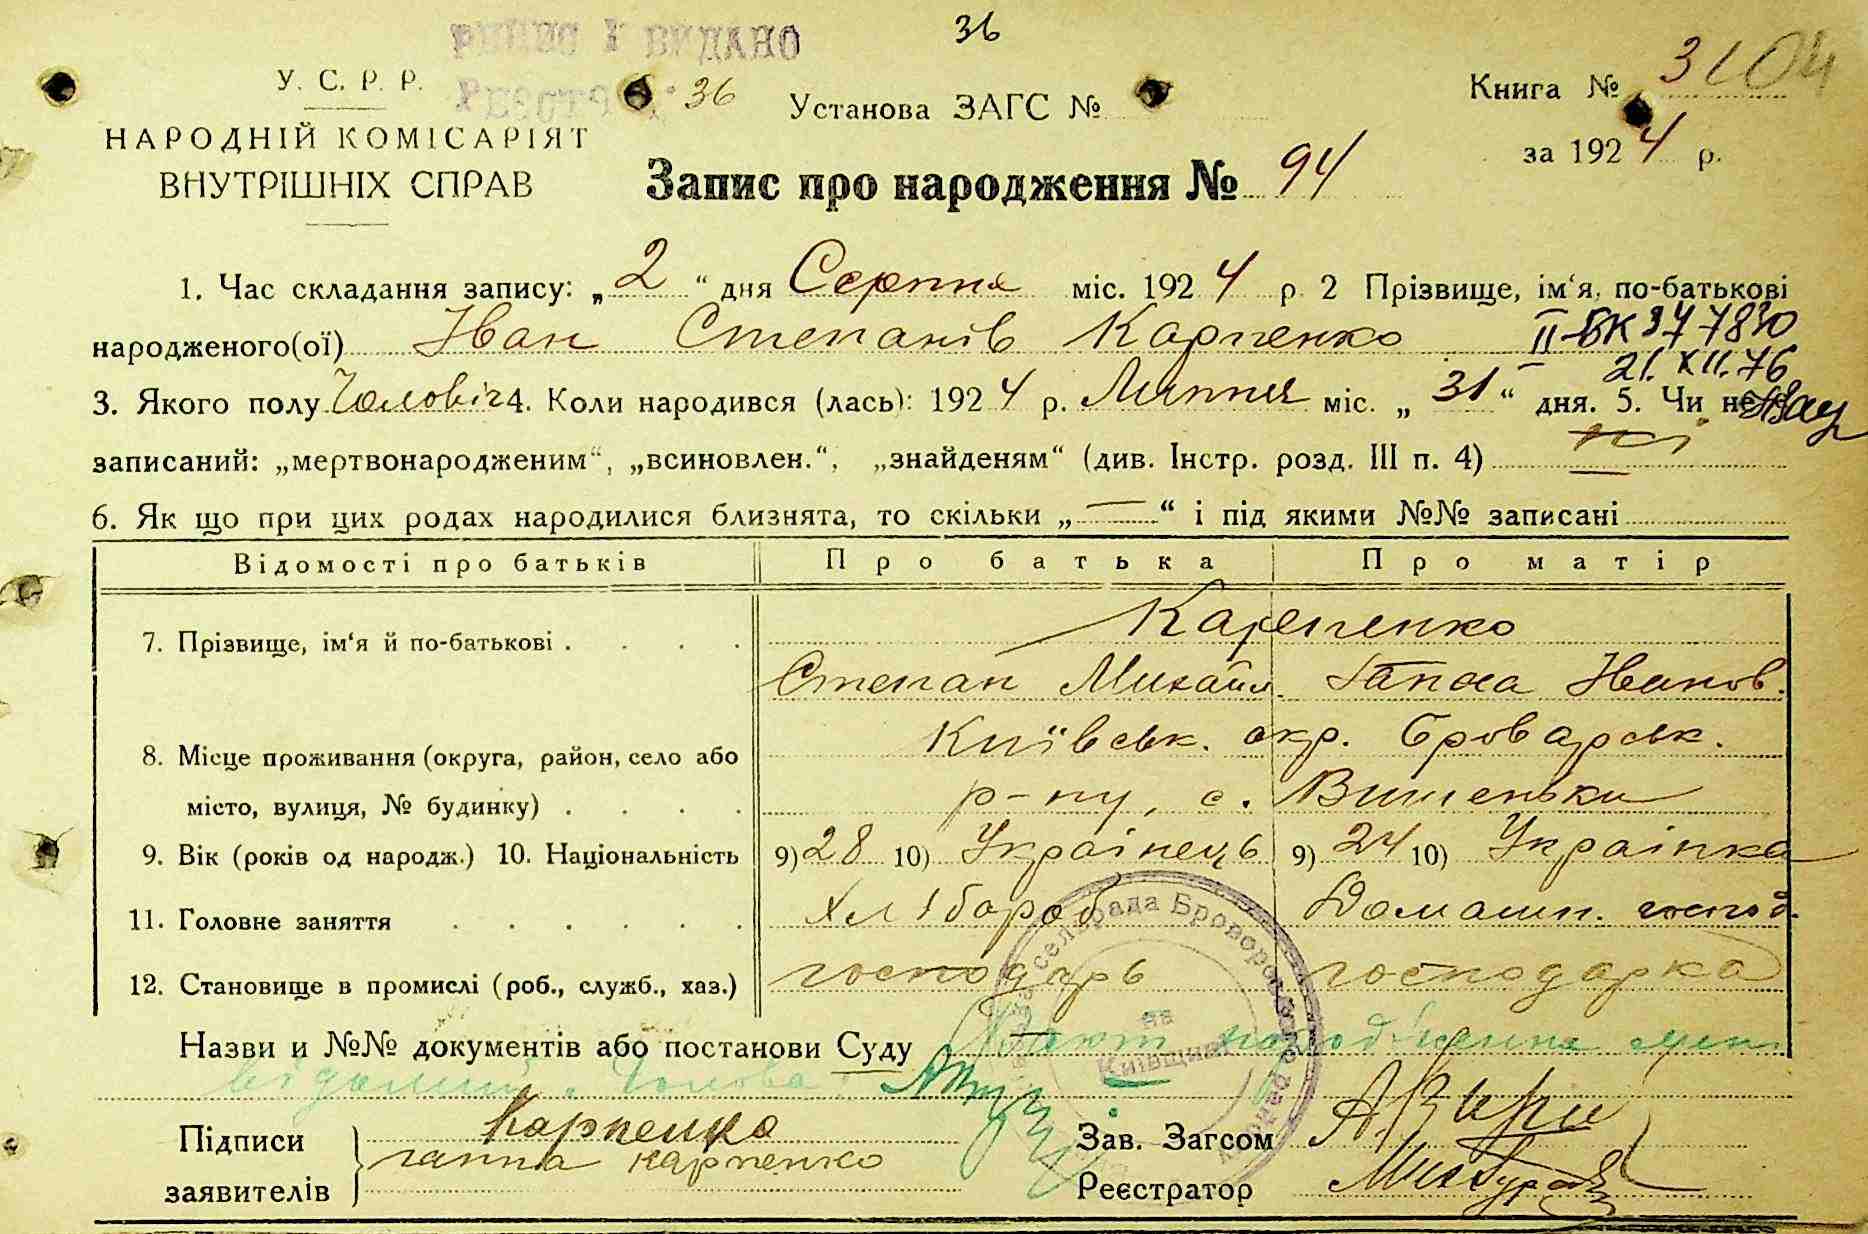 36
ВИПИС І ВИДАНО
У. С. Р. Р.
36
Установа ЗАГС №
Книга № 3
НАРОДНІЙ КОМІСАРІЯТ
ВНУТРІШНІХ СПРАВ
за 1924 р.
Запис про народження № 94
1. Час складання запису: „2“ дня Серпня міс. 1924 р 2 Прізвище, ім‘я, по-батькові
народженого(ої) Іван Степанів Карпенко II-БК 377830
21.XII.76
3. Якого полу Чоловіч 4. Коли народився (лась): 1924 р. Липня міс. „31“ дня. 5. Чи не
записаний: „мертвонародженим“, „всиновлен.“, „знайденям“ (див. Інстр. розд. III п. 4) ні
6. Як що при цих родах народилися близнята, то скільки „—“ і під якими №№ записані
Відомості про батьків Про батька Про матір
7. Прізвище, ім‘я й по-батькові Карпенко
Степан Михайл. Ганна Іванов.
8. Місце проживання (округа, район, село або Київськ. окр. Броварськ.
місто, вулиця, № будинку) р-ну, с. Вишеньки
9. Вік (років од народж.) 10. Національність 9) 28 10) Українець 9) 24 10) Українка
11. Головне заняття Хлібороб Домашн. господ.
12. Становище в промислі (роб., служб., хаз.) господарь господарка
Назви и №№ документів або постанови Суду Факт народження мені
відомий. Голова:
Підписи Карпенко Зав. Загсом
ганна карпенко
заявителів Реєстратор
сельрада Броворського району
на Київщині